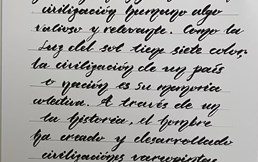 civilización humana algo
valioso y relevante. Como la
luz del sol tiene siete color,
la civilización de un país
o nación es su memoria
colectiva. A través de un
la historia, el hombre
ha creado y desarrollado
civilizaciones